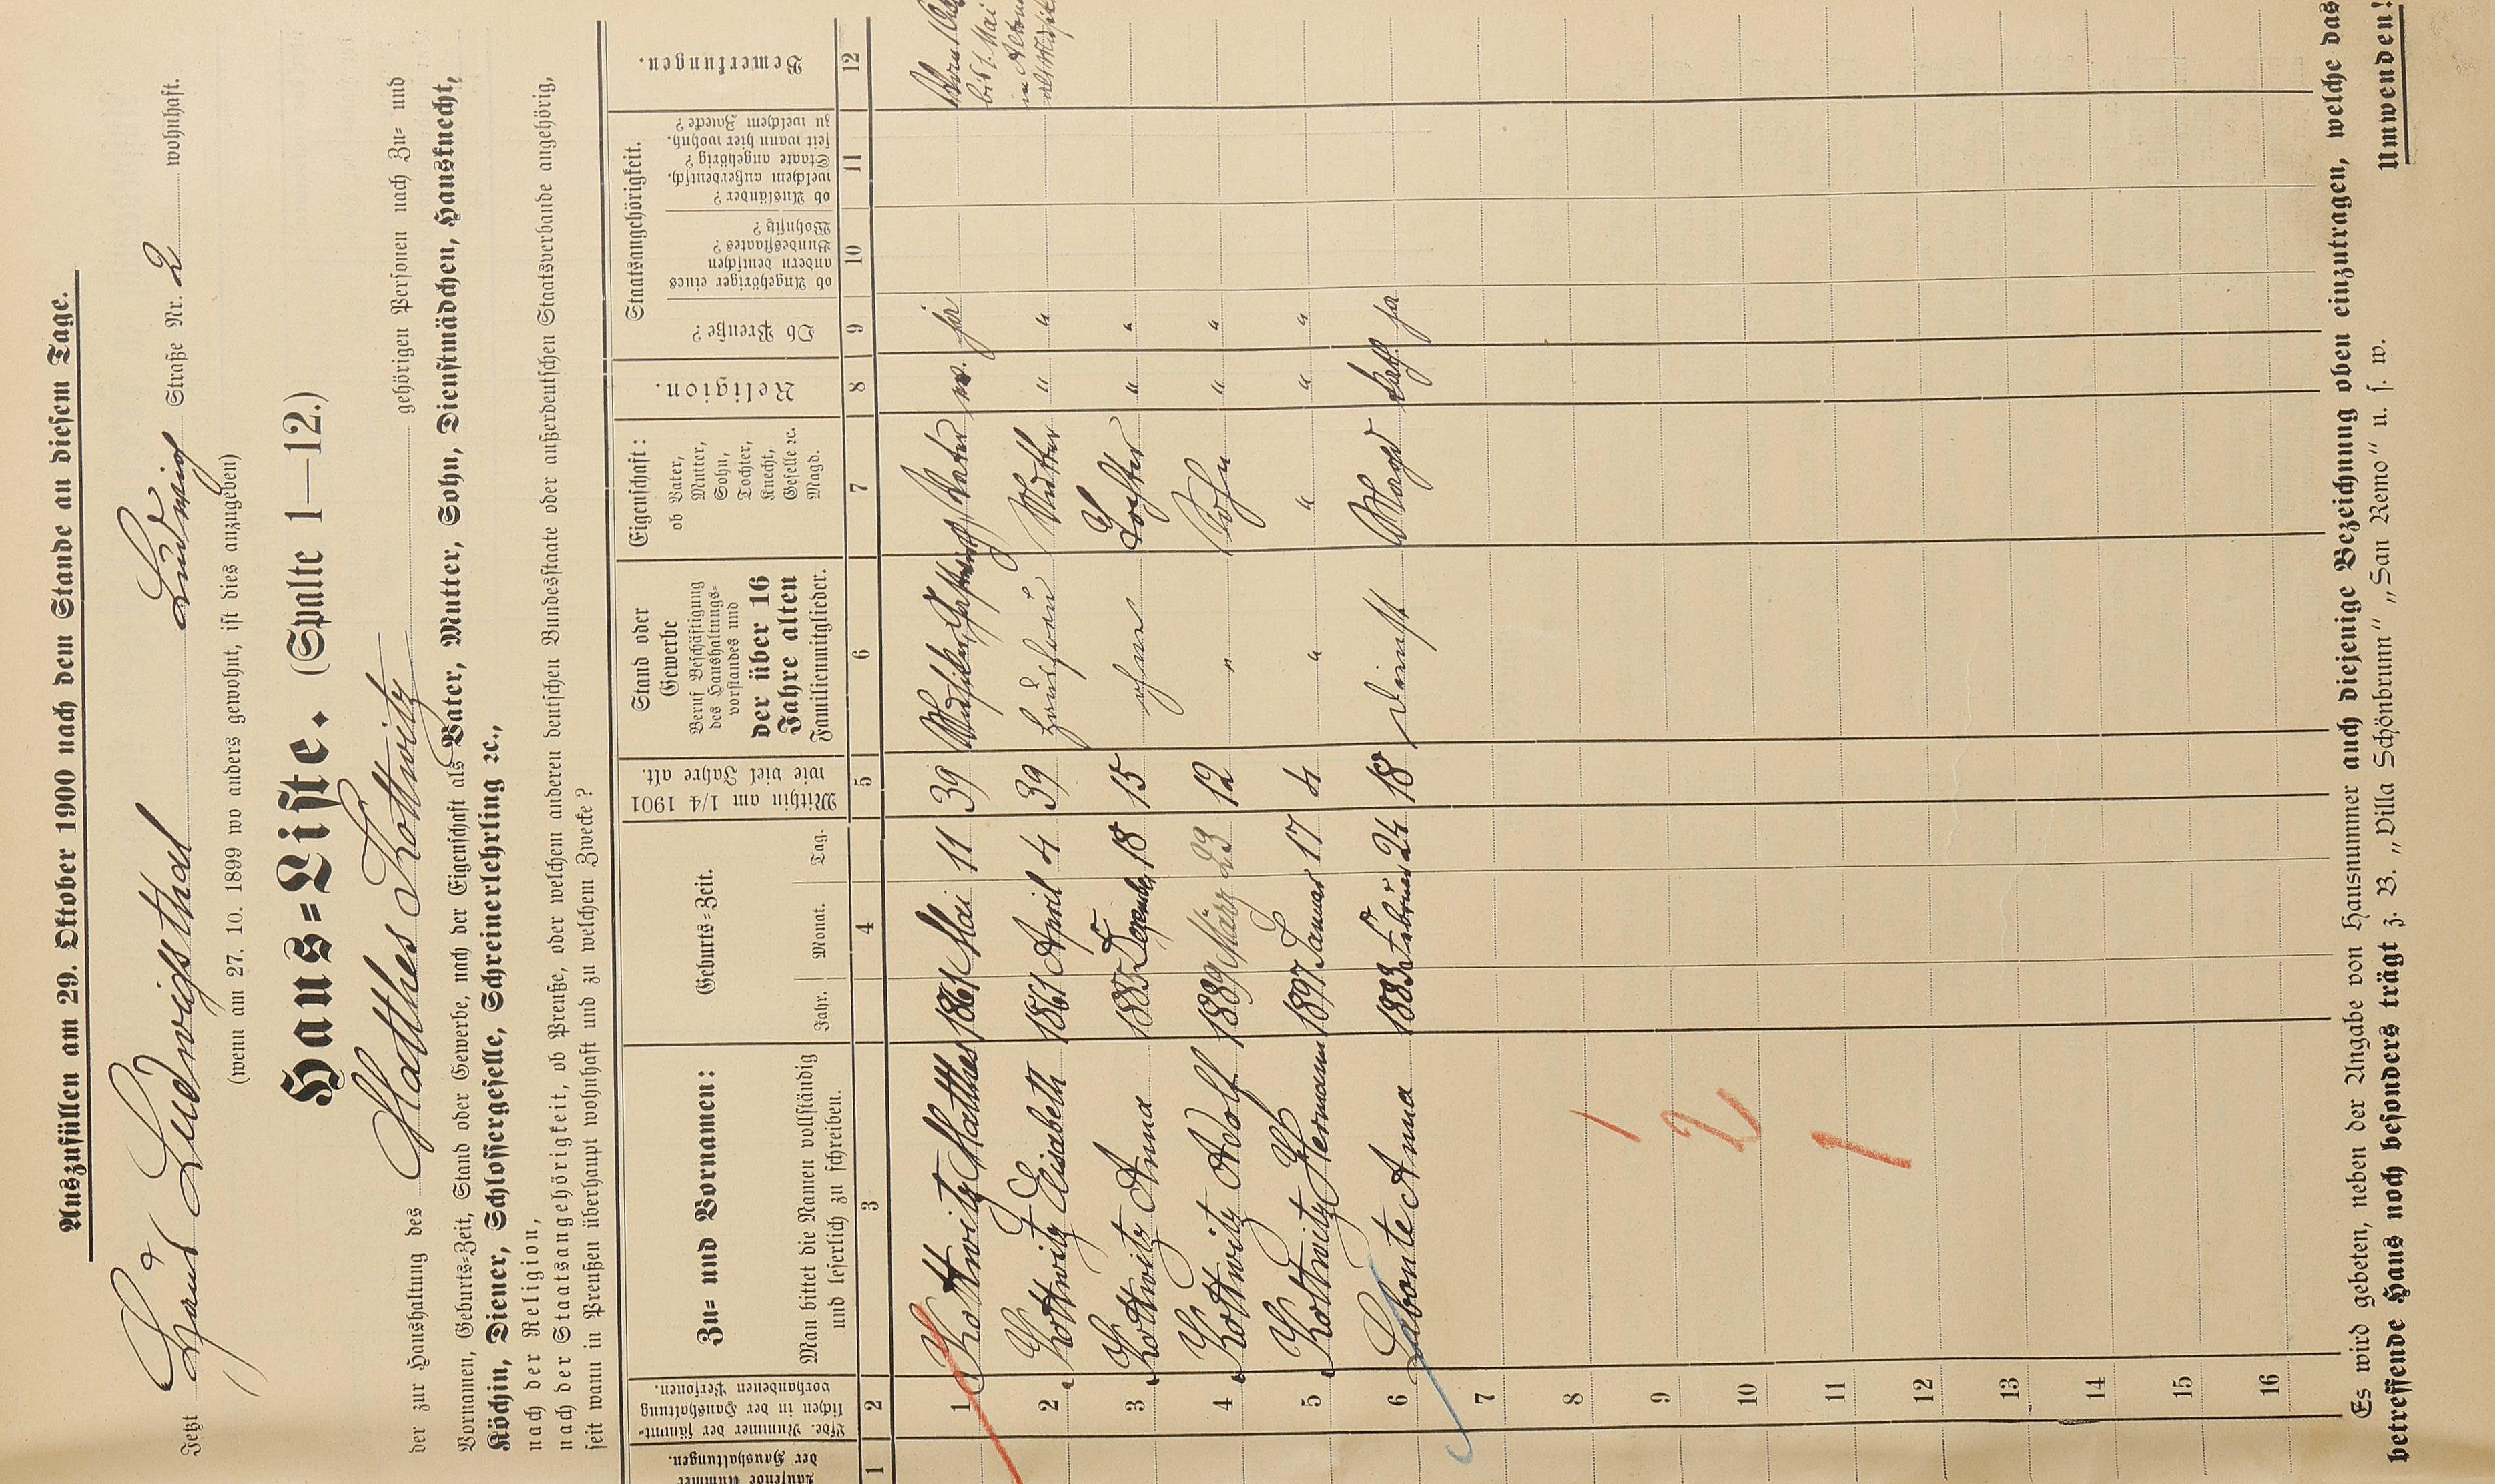 Auszufüllen am 29. Oktober 1900 nach dem Stande an diesem Tage.
Jetzt Haus Ludwigsthal Ludwig Straße Nr. 2 wohnhaft.
(wenn am 27. 10. 1899 wo anders gewohnt, ist dies anzugeben)
Haus=Liste. (Spalte 1—12.)
der zur Haushaltung des Matthes Kottwitz gehörigen Personen nach Zu= und
Vornamen, Geburts=Zeit, Stand oder Gewerbe, nach der Eigenschaft als Vater, Mutter, Sohn, Dienstmädchen, Hausknecht,
Köchin, Diener, Schlossergeselle, Schreinerlehrling ꝛc.,
nach der Religion,
nach der Staatsangehörigkeit, ob Preuße, oder welchem anderen deutschen Bundesstaate oder außerdeutschen Staatsverbande angehörig,
seit wann in Preußen überhaupt wohnhaft und zu welchem Zwecke?
Laufende Nummer der Haushaltungen.
Lfde. Nummer der sämmt=
lichen in der Haushaltung
vorhandenen Personen.
Zu= und Vornamen:
Man bittet die Namen vollständig
und leserlich zu schreiben.
Geburts=Zeit.
Jahr. Monat. Tag.
Mithin am 1/4 1901
wie viel Jahre alt.
Stand oder
Gewerbe
Beruf Beschäftigung
des Haushaltungs=
vorstandes und
der über 16
Jahre alten
Familienmitglieder.
Eigenschaft:
ob Vater,
Mutter,
Sohn,
Tochter,
Knecht,
Geselle ꝛc.
Magd.
Religion.
Staatsangehörigkeit.
Ob Preuße?
ob Angehöriger eines
andern deutschen
Bundesstaates?
Wohnsitz?
ob Ausländer?
welchem außerdeutsch.
Staate angehörig?
seit wann hier wohnh.
zu welchem Zwecke?
Bemerkungen.
1 2 3 4 5 6 7 8 9 10 11 12
1 Kottwitz Matthes 1861 Mai 11 39 Vater ja
bis 1. Mai
2 Kottwitz Elisabeth 1861 April 4 39 Hausfrau Mutter " "
3 Kottwitz Anna 1885 Dezember 18 15 ohne Tochter " "
4 Kottwitz Adolf 1889 März 23 12 " Sohn " "
5 Kottwitz Hermann 1897 Januar 17 4 " " " "
6 Labonte Anna 1883 Februar 24 18 Dienst Magd kath. ja
7
8 1
9
10 2
11 1
12
13
14
15
16
Es wird gebeten, neben der Angabe von Hausnummer auch diejenige Bezeichnung oben einzutragen, welche das
betreffende Haus noch besonders trägt z. B. „Villa Schönbrunn“ „San Remo“ u. s. w.
Umwenden!